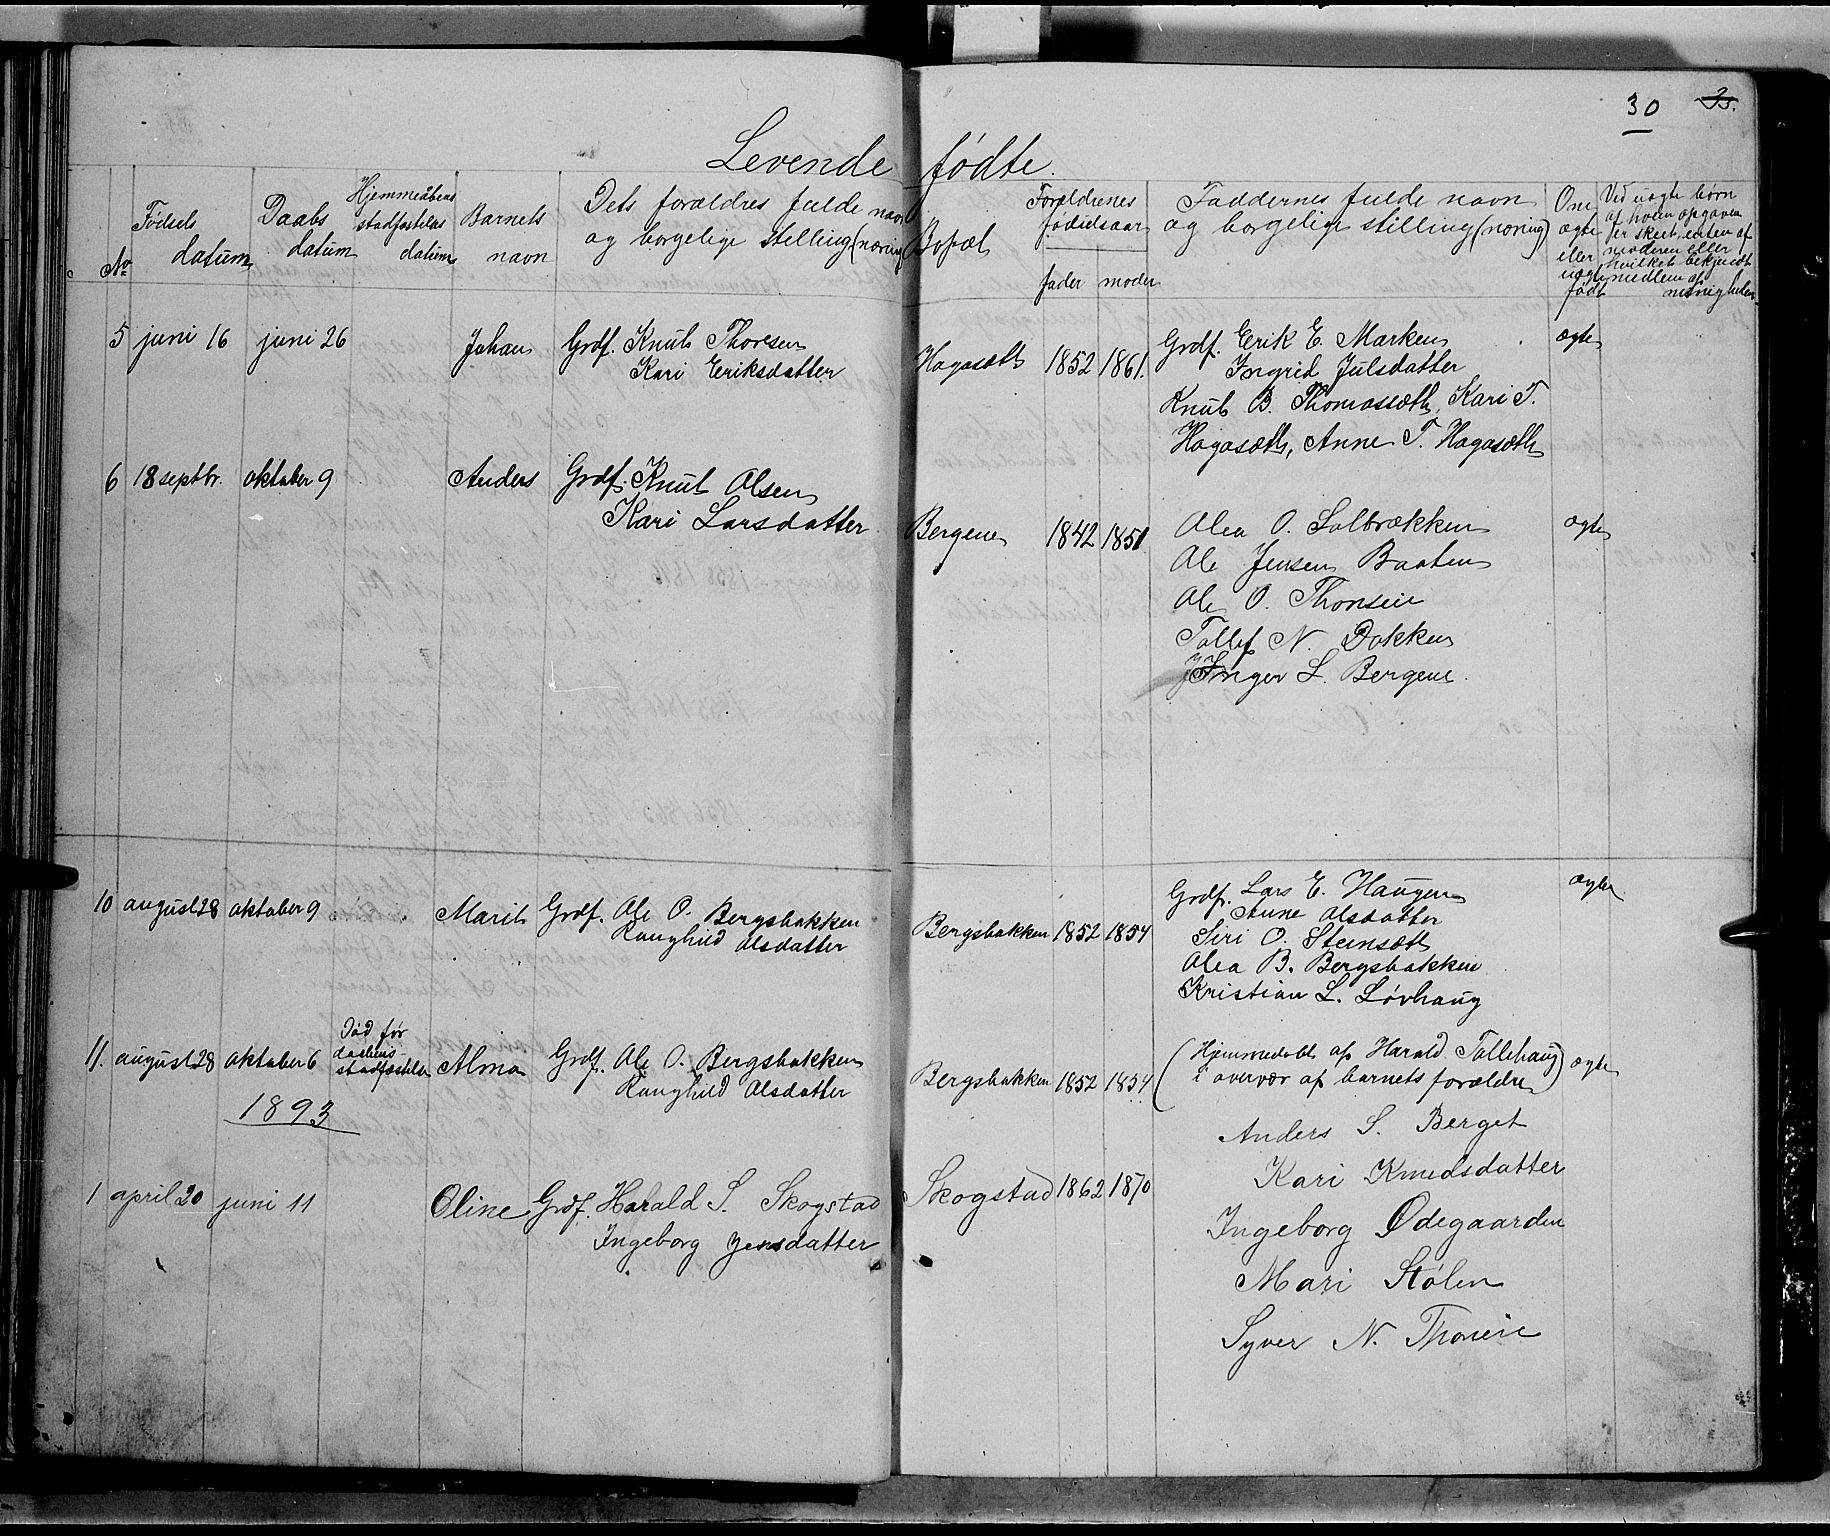 30 35.
Levende fødte.
No
Fødsels datum
Daabs datum
Hjemmedåbens stadfæstelses datum
Barnets navn
Dets forældres fulde navn og borgelige stilling (næring)
Bopæl
Forældrenes fødselsaar
fader moder
Faddernes fulde navn og borgelige stilling (næring)
Om ægte eller uægte født
Ved uægte børn af hvem opgaven er skeet, enten af moderen eller hvilket bekjendt medlem af menigheden
5 juni 16 juni 26 Johan Grdf. Knut Thoresen Hagasæth 1852 1861. Grdf. Erik E. Marken ægte
Kari Eriksdatter Ingrid Julsdatter
Knut B. Thomassæth, Kari T.
Hagasæth, Anne T. Hagasæth
6 18 septbr. oktober 9 Anders Grdf. Knut Olsen
Kari Larsdatter Bergene 1842 1851 Olea O. Solbrækken ægte
Ole Jensen Baaten
Ole O. Thonseie
Tollef N. Dokken
Inger L. Bergene.
10 august 28 oktober 9 Marit Grdf. Ole O. Bergsbakken Bergsbakken 1852 1854 Grdf. Lars E. Haugen ægte
Ranghild Olsdatter Anne Olsdatter
Siri O. Steinsæth
Olea B. Bergsbakken
Kristian L. Løvhaug
11. august 28 oktober 6 Død før daabens stadfæstelse Alma Grdf. Ole O. Bergsbakken Bergsbakken 1852 1854 (Hjemmedøbt af Harald Tollehaug ægte
Ranghild Olsdatter i overvær af barnets forældre)
1893
Anders S. Berget
1 april 20 juni 11 Oline Grdf. Harald S. Skogstad Skogstad 1862 1870 Kari Knudsdatter
Ingeborg Jensdatter Ingeborg Ødegaarden
Mari Stølen
Syver N. Thoneie